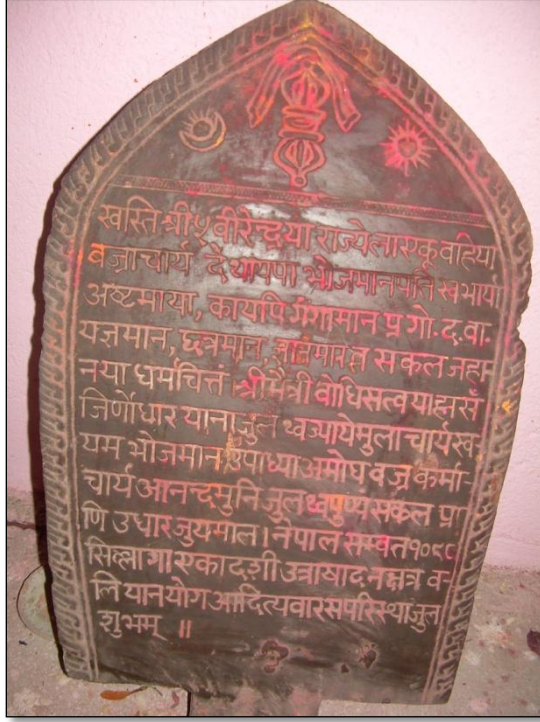 स्वस्ति श्री ५ वीरेन्द्रया राज्येलास्कु वहिया
वज्राचार्य देयायपा भोजमानपति स्वभार्या
अष्टमाया, कायपिं गंगामान प्र गो. द. वा.
यज्ञमान, छत्रमान, सकल जहा
नया धर्मचित्तं श्रीमैत्री वोधिसत्वयाह्नसं
जिर्णोधार यानाजुल ध्वज्यायेमुलाचार्यस्व
यम भोजमान उपाध्या अमोघ वज्र कर्मा-
चार्य आनन्दमुनि जुल ध्वपुण्य सकल प्रा
णि उधार जुयमाल। नेपाल सम्वत १०९९
सिल्लागा एकादशी उत्राषाढ नक्षत्र व-
लियानयोग आदित्यवारसपरिस्थाजुल
शुभम् ॥